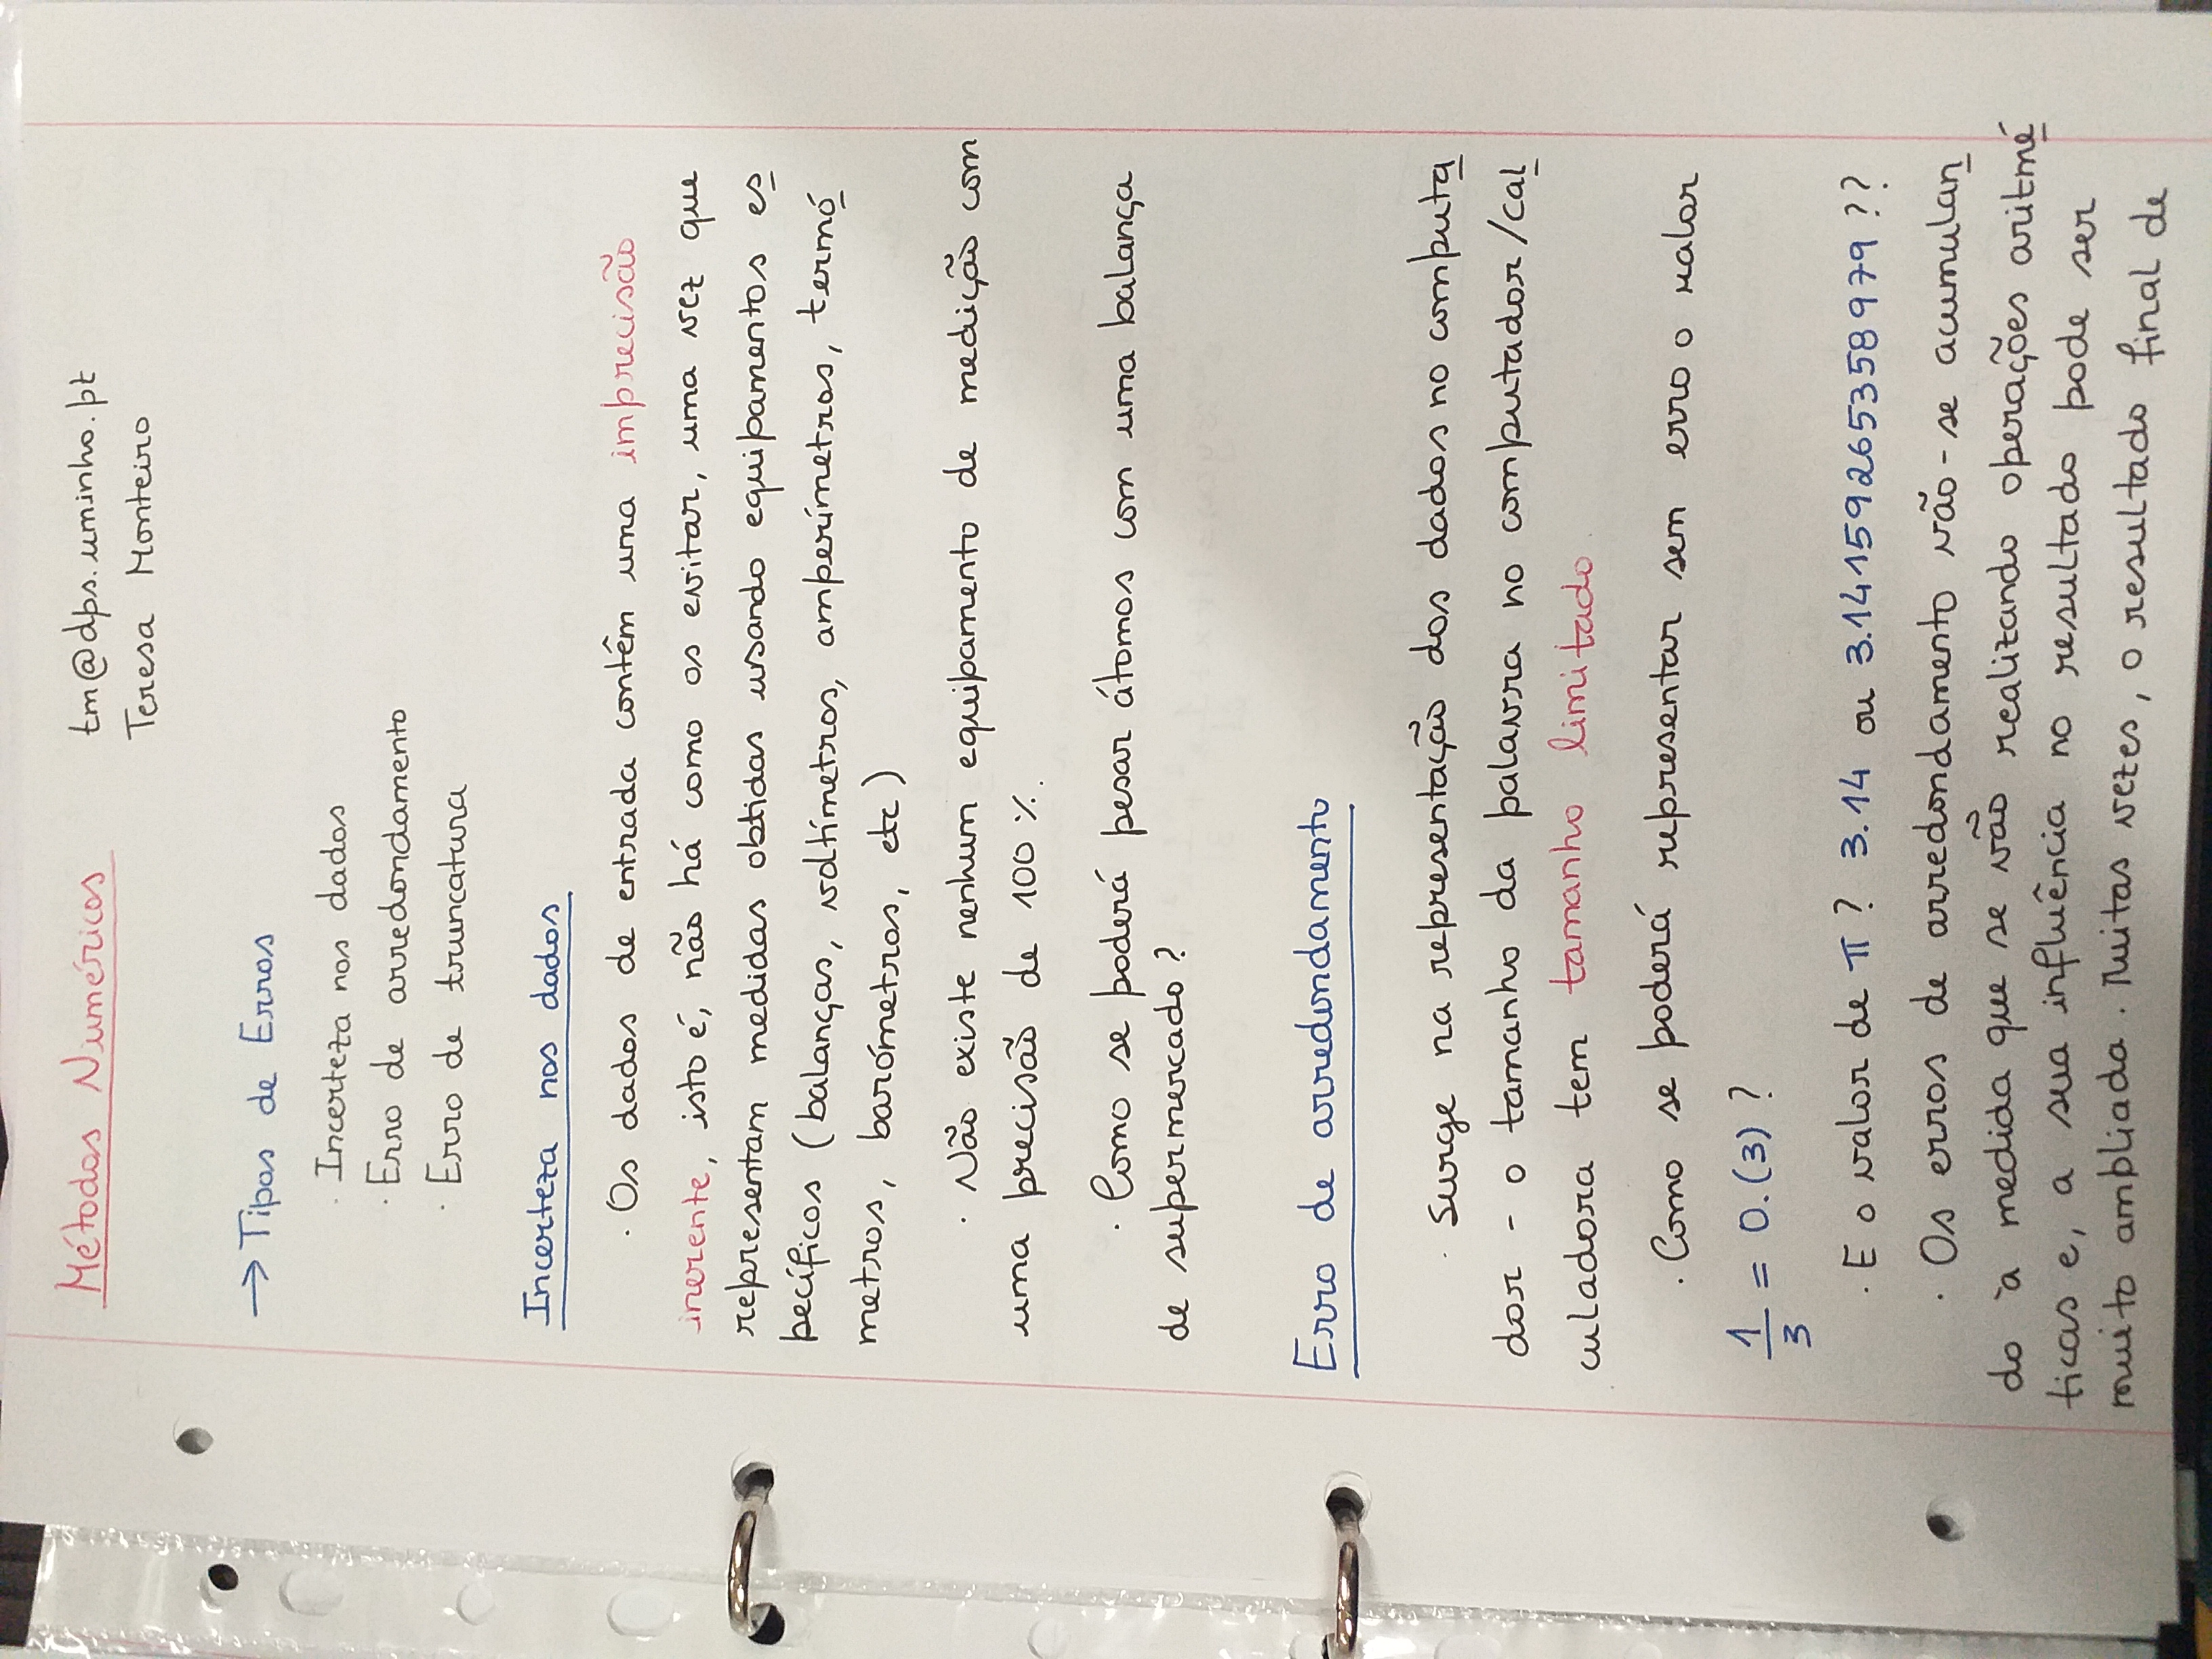 Métodos Numéricos
tm@dps.uminho.pt
Teresa Monteiro
→ Tipos de Erros
· Incerteza nos dados
· Erro de arredondamento
· Erro de truncatura
Incerteza nos dados
· Os dados de entrada contêm uma imprecisão
inerente, isto é, não há como os evitar, uma vez que
representam medidas obtidas usando equipamentos es
pecíficos (balanças, voltímetros, amperímetros, termó
metros, barómetros, etc)
· Não existe nenhum equipamento de medição com
uma precisão de 100 %.
· Como se poderá pesar átomos com uma balança
de supermercado?
Erro de arredondamento
· Surge na representação dos dados no computa
dor - o tamanho da palavra no computador/cal
culadora tem tamanho limitado.
· Como se poderá representar sem erro o valor
1/3 = 0.(3) ?
· E o valor de π ? 3.14 ou 3.14159265358979 ??
· Os erros de arredondamento vão-se acumulan
do à medida que se vão realizando operações aritmé
ticas e, a sua influência no resultado pode ser
muito ampliada. Muitas vezes, o resultado final de